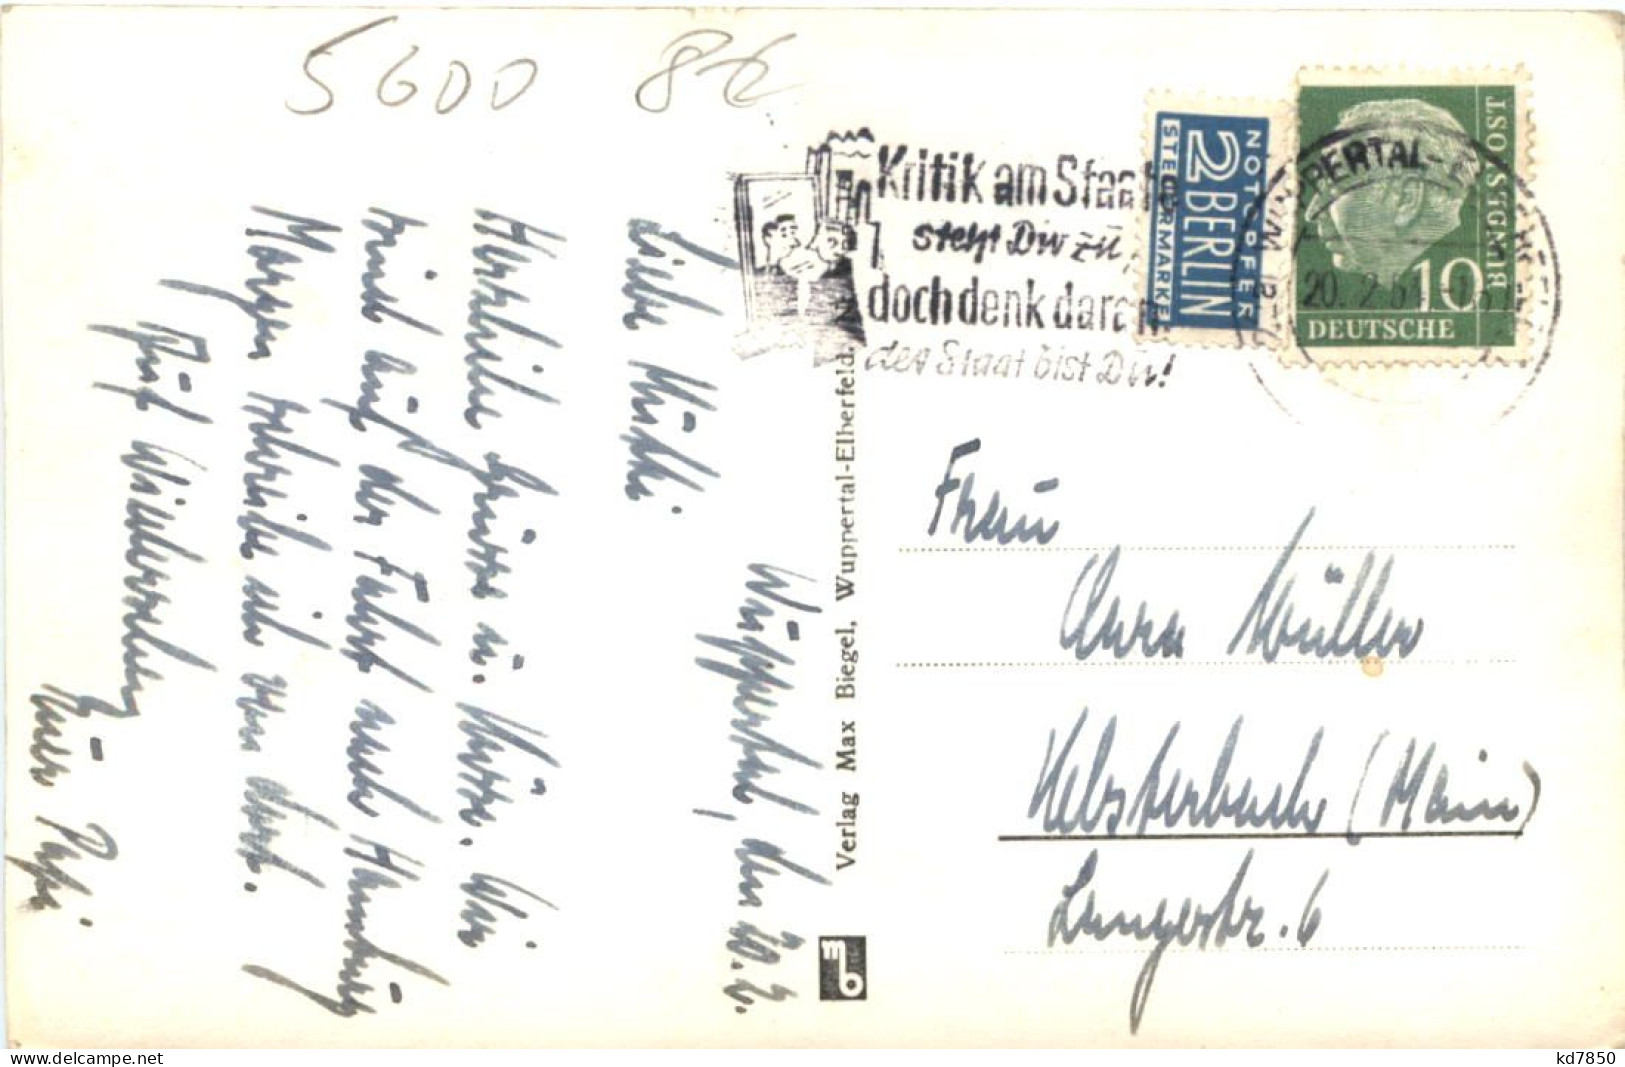 5600 8€
Wuppertal, den 20.2.
Liebe Mutti
Herzliche Grüsse u. Küsse. Wir
sind auf der Fahrt nach Hamburg
Morgen schreibe ich von dort.
Auf Wiedersehen
Euer Papi
Verlag Max Biegel, Wuppertal-Elberfeld.
Kritik am Staate
steht Dir zu,
doch denk daran
der Staat bist Du!
NOTOPFER
2 BERLIN
STEUERMARKE
WUPPERTAL-E
20. 2. 5
10
DEUTSCHE
BUNDESPOST
Frau
Müller
Kelsterbach (Main)
Langestr. 6
www.delcampe.net
kd7850